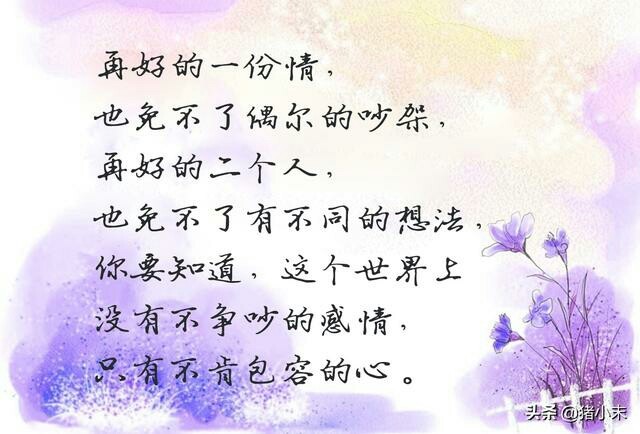 再好的一份情，
也免不了偶尔的吵架，
再好的二个人，
也免不了有不同的想法，
你要知道，这个世界上
没有不争吵的感情，
只有不肯包容的心。
头条@猪小末